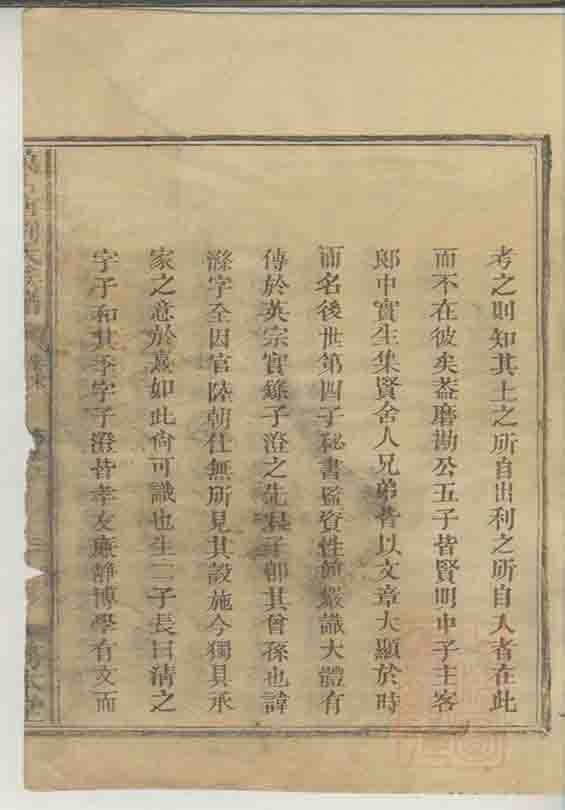 考之則知其土之所自出利之所自入者在此
而不在彼矣葢磨勘公五子皆賢明中子主客
郎中實生集賢舍人兄弟皆以文章大顯於時
而名後世第四子秘書監資性嚴識大體有
傳於英宗實錄子澄之先子卽其曾孫也諱
滌字全因官陸朝仕無所見其設施今獨具承
家之意於熹如此尙可識也生二子長曰清之
字子和其季字子澄皆孝友廉靜博學有文而
劉氏族譜